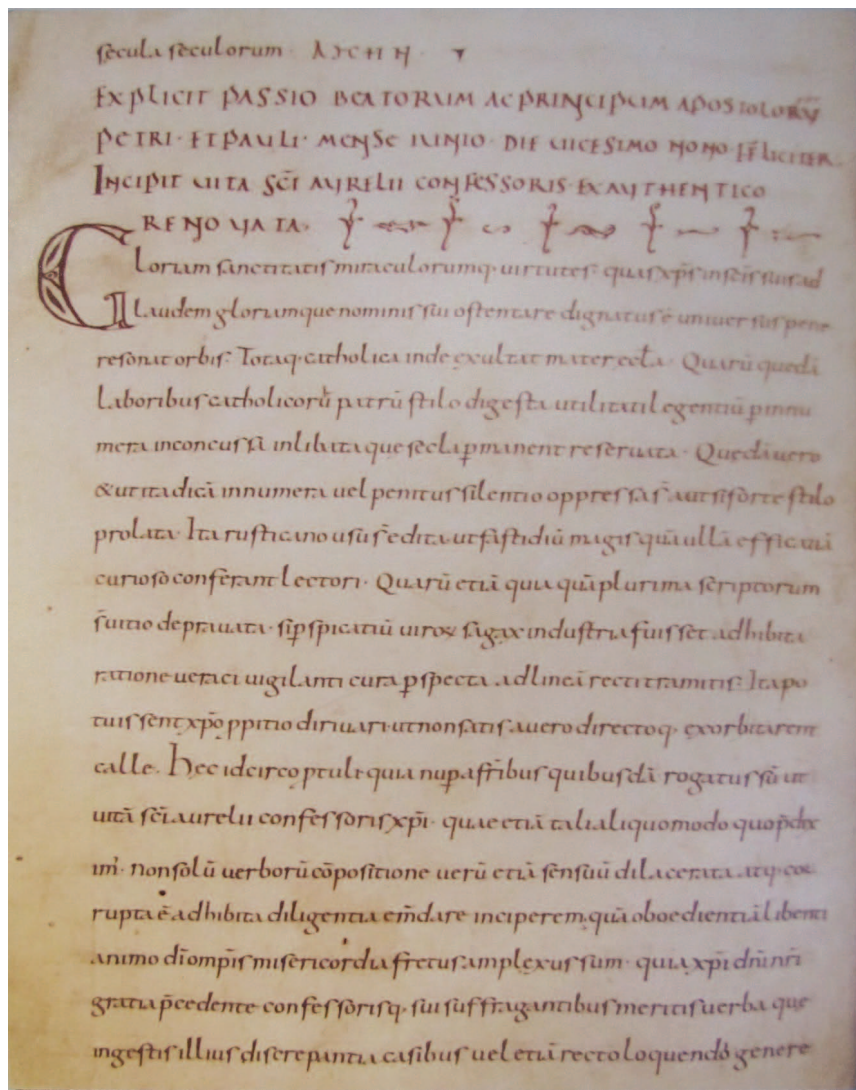 secula seculorum · AMEN ·
EXPLICIT PASSIO BEATORUM AC PRINCIPUM APOSTOLORU
PETRI · ET PAULI · MENSE IUNIO · DIE UICESIMO NONO FELICITER
INCIPIT UITA SCĪ AURELII CONFESSORIS · EX AUTHENTICO
RENOUATA ·
Gloriam sanctitatis miraculorumq· uirtutes· quas xp̄s in sc̄is suis ad
laudem gloriamque nominis sui ostentare dignatus ē uniuersus pene
resonat orbis· Totaq· catholica inde exultat mater eccła · Quarū quedā
laboribus catholicorū patrū stilo digesta utilitati legentiū p innu
mera inconcussa inlibataque secla pmanent reseruata · Quedā uero
& ut ita dicā innumera uel penitus silentio oppressa s̄ aut si forte stilo
prolata · Ita rusticano usu s̄ edita ut fastidiū magis quā ullā efficaciā
curioso conferant lectori · Quarū etiā quia quā plurima scriptorum
s̄ uitio deprauata · si pspicatiū uiroꝝ sagax industria fuisset adhibita
ratione ueraci uigilanti cura pspecta ad lineā recti tramitis· Ita po
tuissent xp̄o ppitio diriuari · ut non satis a uero directoq· exorbitarent
calle · Hec idcirco ptuli · quia nup a fr̄ibus quibusdā rogatus sū ut
uitā sc̄i aurelii confessoris xp̄i · quae etiā tali aliquomodo quo p̄dix
im̄· non solū uerborū cōpositione uerū etiā sensuū dilacerata atq· cor
rupta ē adhibita diligentia em̄dare inciperem· quā oboedientiā libenti
animo dī omp̄is misericordia fretus amplexus sum · quia xp̄i dn̄i nr̄i
gratia p̄cedente confessorisq· sui suffragantibus meritis uerba que
in gestis illius discrepantia casibus uel etiā recto loquendo genere